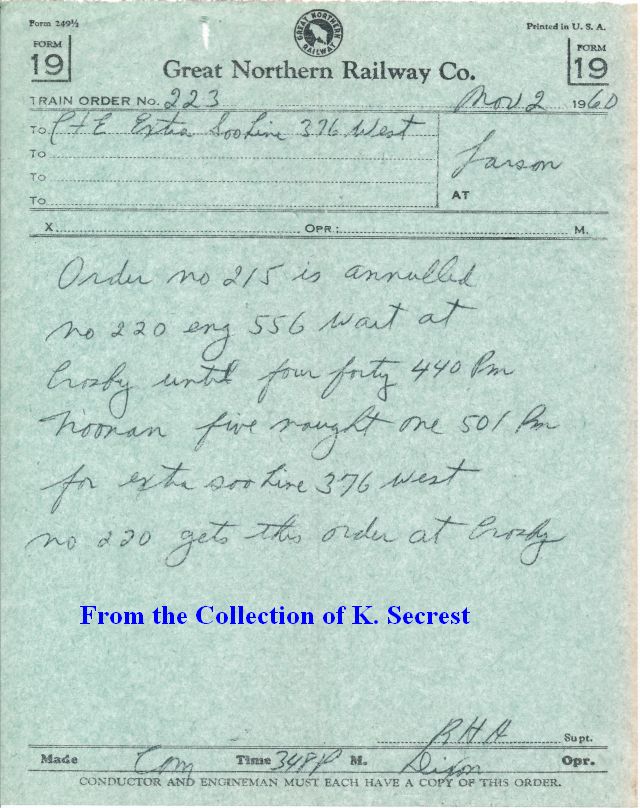 Form 249½
Printed in U. S. A.
FORM 19
GREAT NORTHERN RAILWAY
FORM 19
Great Northern Railway Co.
TRAIN ORDER No. 223 Nov 2 1960
To C+E Extra Soo Line 376 West
To
To
To
Larson
AT
X OPR: M.
Order no 215 is annulled
no 220 eng 556 wait at
Crosby until four forty 440 Pm
Noonan five nought one 501 Pm
for extra soo Line 376 west
no 220 gets this order at Crosby
From the Collection of K. Secrest
RHA Supt.
Made Com Time 348P M. Dixon Opr.
CONDUCTOR AND ENGINEMAN MUST EACH HAVE A COPY OF THIS ORDER.